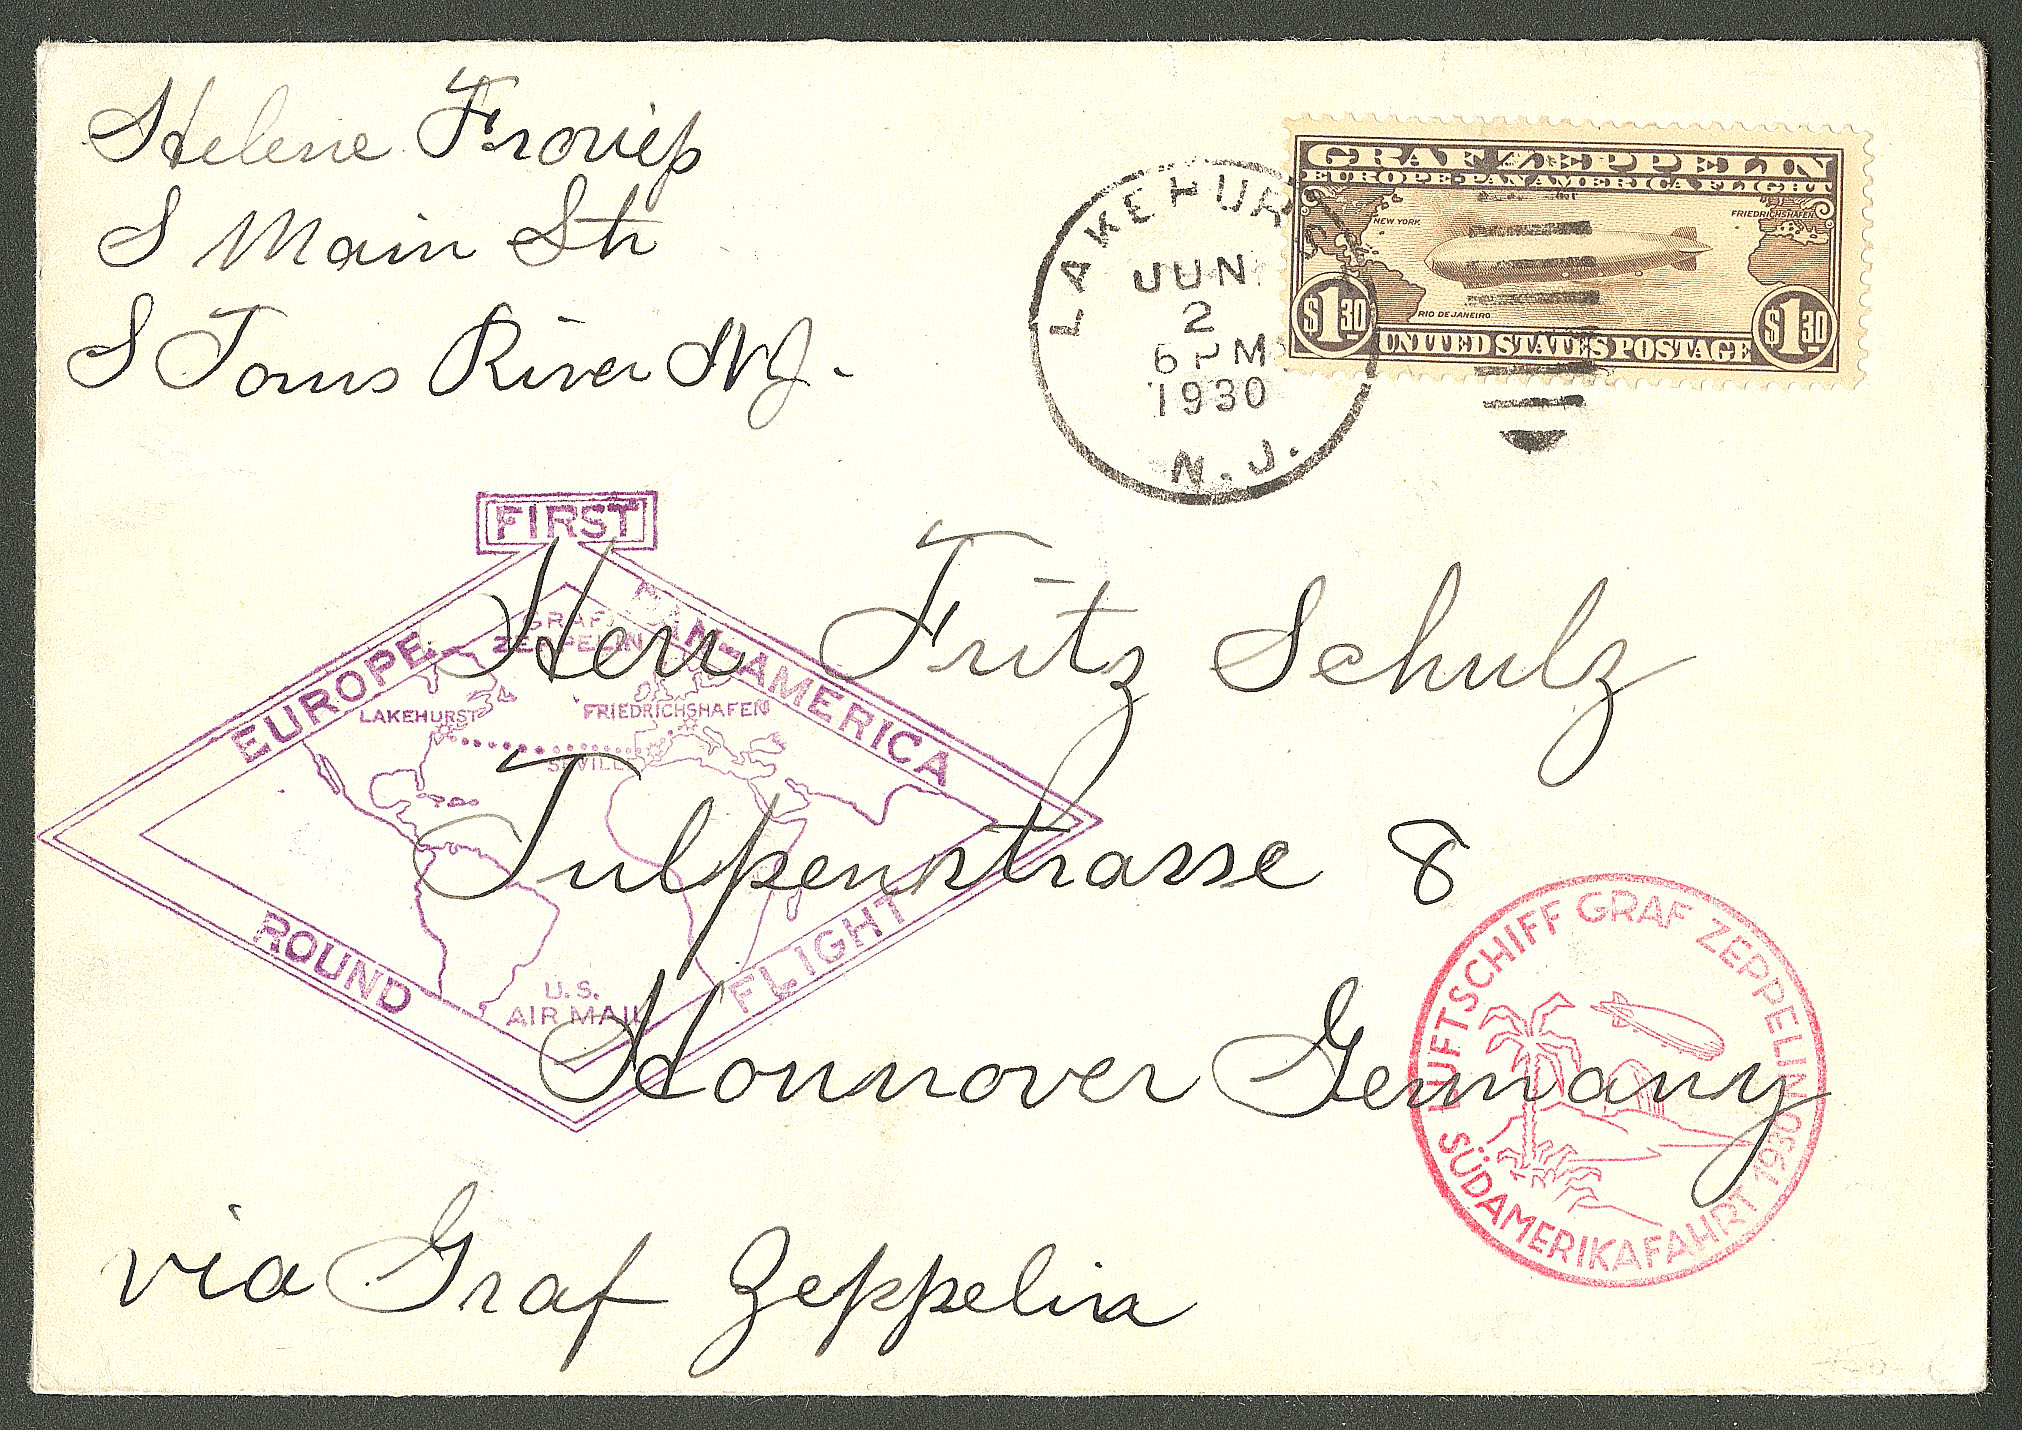 Helene Froriep
S Main Str
S Toms River N.J.
LAKEHURST
JUN
2
6 PM
1930
N.J.
GRAF ZEPPELIN
EUROPE-PAN AMERICA FLIGHT
NEW YORK
FRIEDRICHSHAFEN
RIO DE JANEIRO
$1.30
$1.30
UNITED STATES POSTAGE
FIRST
EUROPE
PAN-AMERICA
GRAF
ZEPPELIN
LAKEHURST
FRIEDRICHSHAFEN
SEVILLE
ROUND
FLIGHT
U.S.
AIR MAIL
Herr Fritz Schulz
Tulpenstrasse 8
Hannover Germany
LUFTSCHIFF GRAF ZEPPELIN
SÜDAMERIKAFAHRT 1930
via Graf Zeppelin